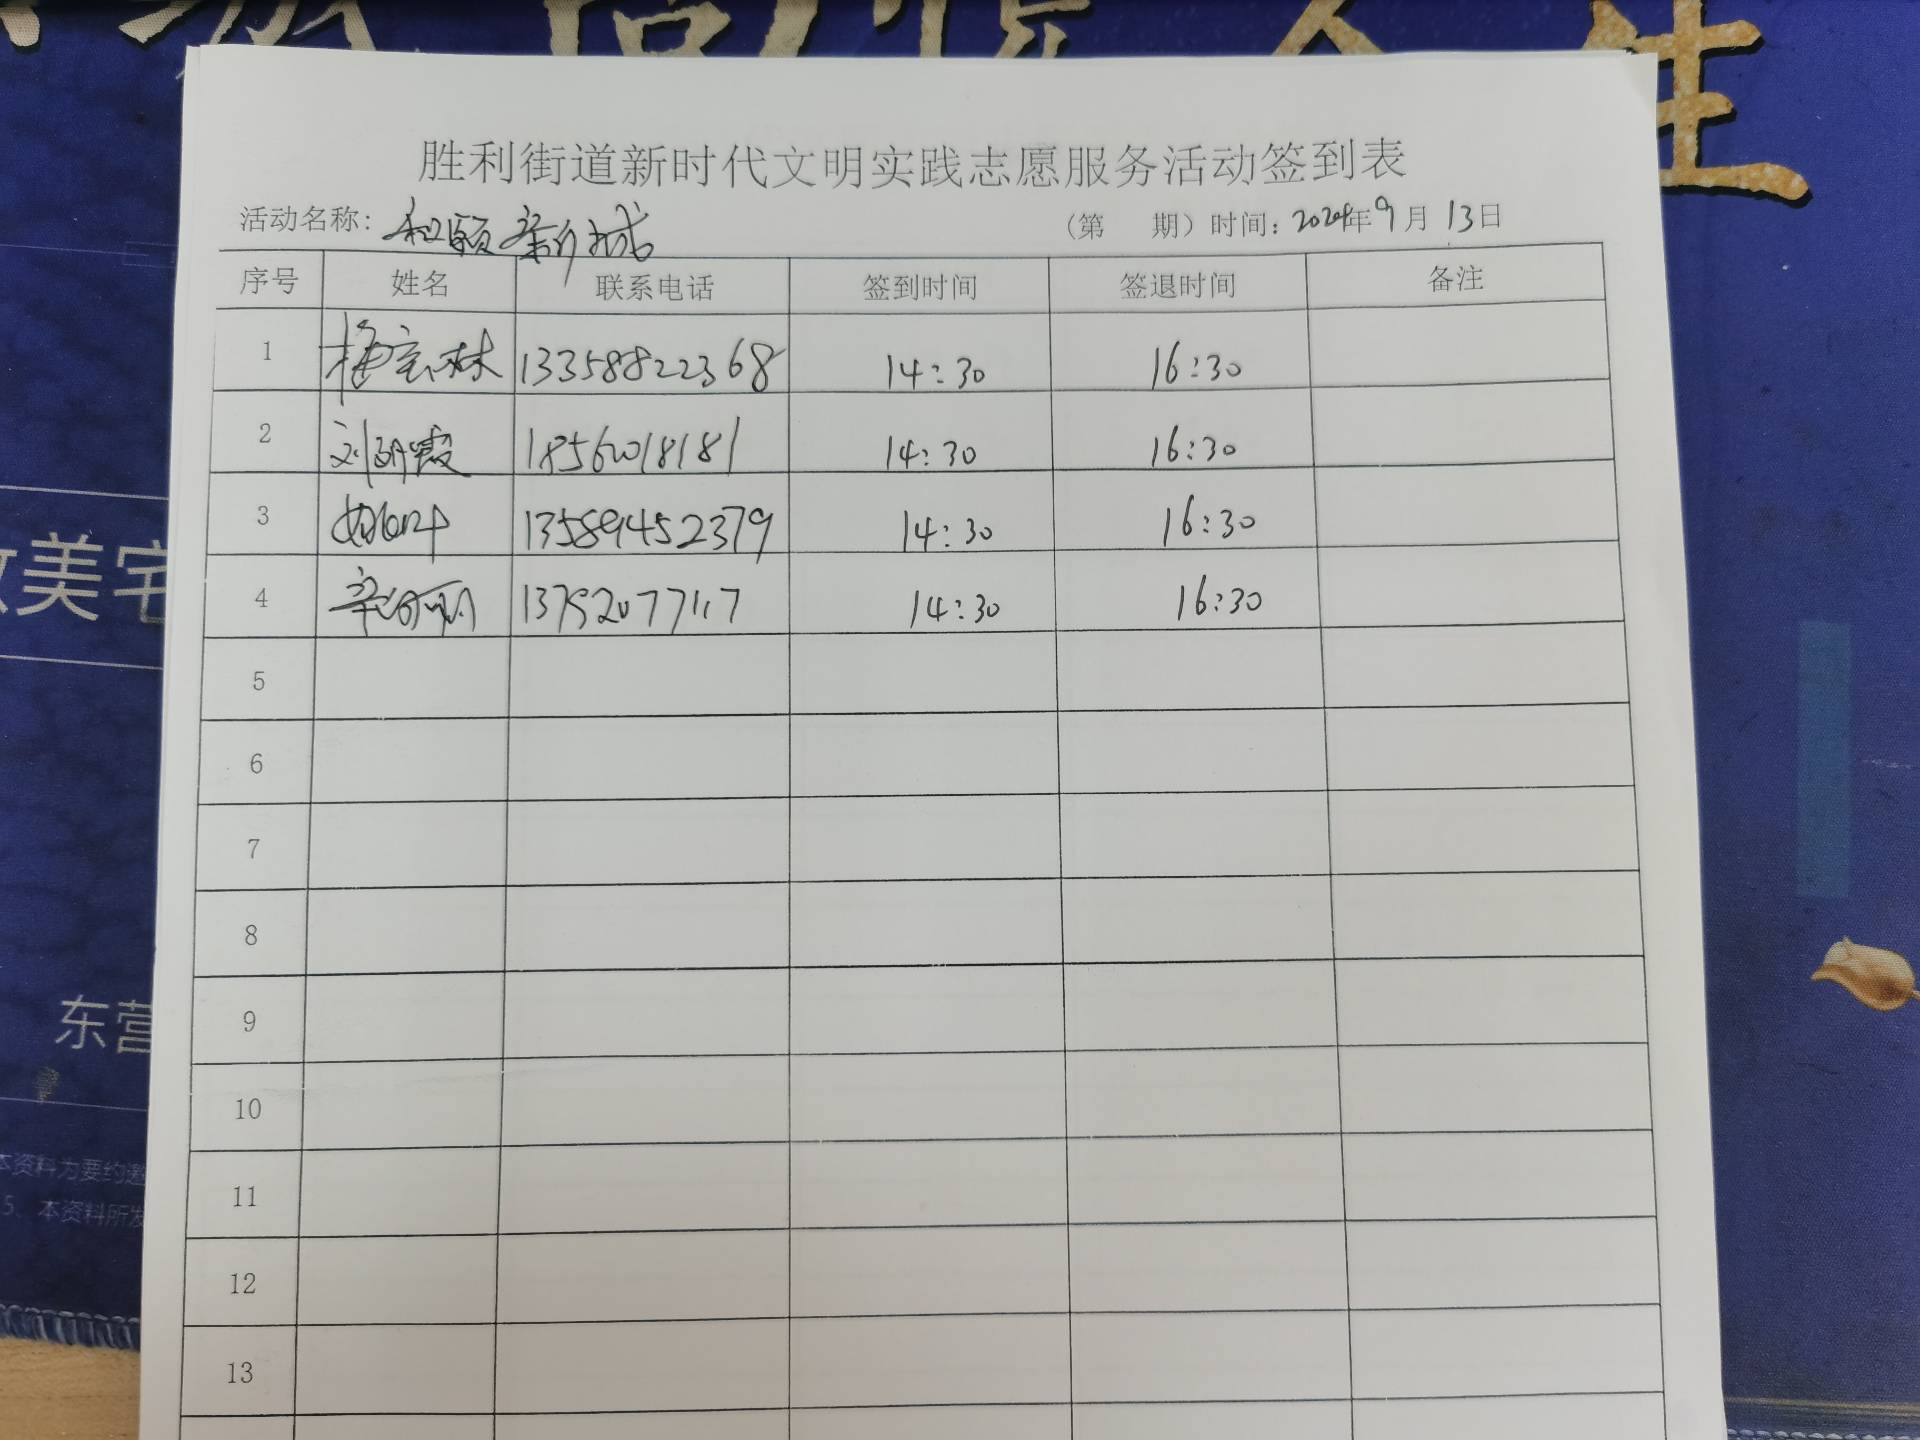 生
胜利街道新时代文明实践志愿服务活动签到表
活动名称: 和颐新城 (第 期) 时间: 2024年9月13日
序号 姓名 联系电话 签到时间 签退时间 备注
1 13358822368 14:30 16:30
2 刘丽霞 18560018181 14:30 16:30
3 13589452379 14:30 16:30
4 13792077117 14:30 16:30
5
6
7
8
9
10
11
12
13
美宅
东营
本资料为要约邀
5、本资料所发